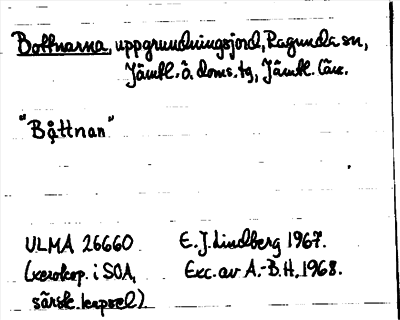 Bottnarna, uppgrundningsjord, Ragunda sn,
Jämtl. ö. doms. tg, Jämtl. län.
"Båttnan"
ULMA 26660 E. J. Lindberg 1967.
(xerokop. i SOA, Exc. av A.-B. H. 1968.
särsk. kapsel)